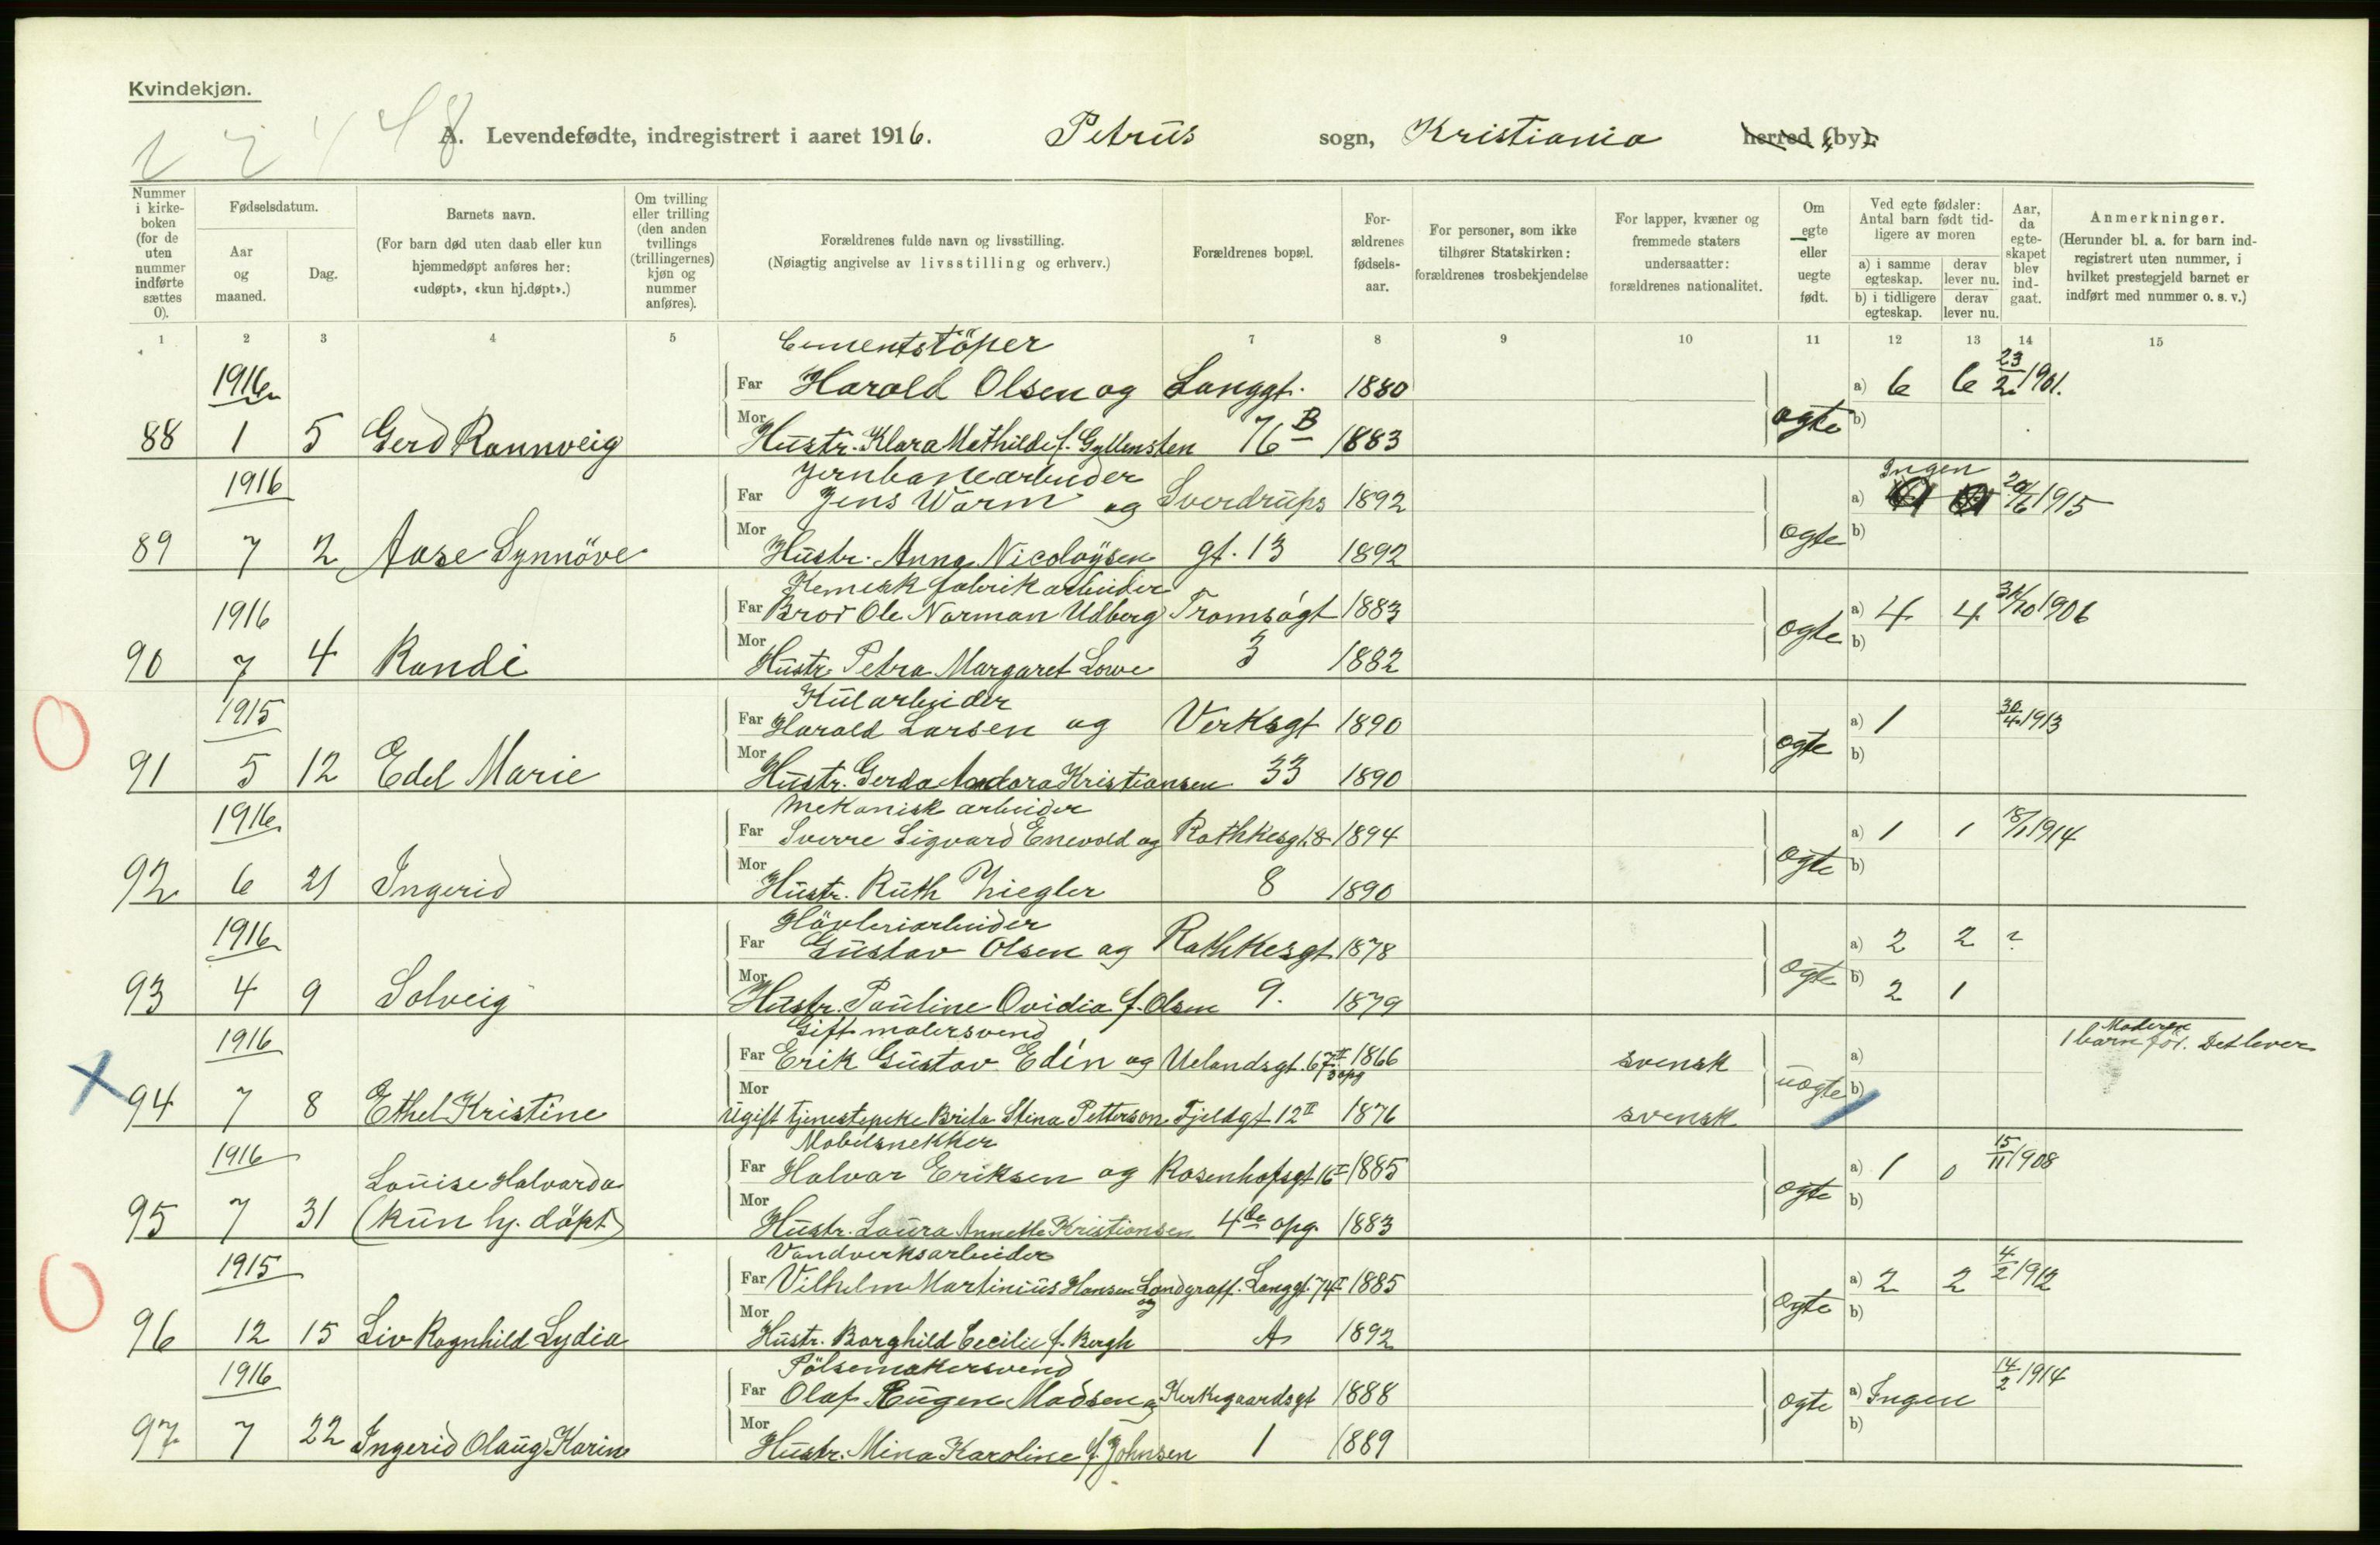 Kvindekjøn.
A. Levendefødte, indregistrert i aaret 1916. Petrus sogn, Kristiania herred (by).
Nummer i kirkeboken (for de uten nummer indførte sættes 0).
Fødselsdatum.
Aar og maaned.
Dag.
Barnets navn.
(For barn død uten daab eller kun hjemmedøpt anføres her: «udøpt», «kun hj.døpt».)
Om tvilling eller trilling (den anden tvillings (trillingernes) kjøn og nummer anføres).
Forældrenes fulde navn og livsstilling.
(Nøiagtig angivelse av livsstilling og erhverv.)
Forældrenes bopæl.
Forældrenes fødselsaar.
For personer, som ikke tilhører Statskirken: forældrenes trosbekjendelse
For lapper, kvæner og fremmede staters undersaatter: forældrenes nationalitet.
Om egte eller uegte født.
Ved egte fødsler: Antal barn født tidligere av moren
a) i samme egteskap. derav lever nu.
b) i tidligere egteskap. derav lever nu.
Aar, da egteskapet blev indgaat.
Anmerkninger.
(Herunder bl. a. for barn indregistrert uten nummer, i hvilket prestegjeld barnet er indført med nummer o. s. v.)
1 2 3 4 5 7 8 9 10 11 12 13 14 15
Cementstöper
1916 Far Harald Olsen og Langgt. 1880 a) 6 6 23/2 1901.
88 1 5 Gerd Rannveig Mor Hustr. Klara Mathilde f. Gyllensten 76 B 1883 egte b)
Jernbanearbeider Ingen
1916 Far Jens Worm og Sverdrups 1892 a) 20/6 1915
89 7 2 Aase Synnöve Mor Hustr. Anna Nicolaysen gt. 13 1892 egte b)
Kemisk fabrikarbeider
1916 Far Bror Ole Norman Udberg Tromsøgt 1883 a) 4 4 31/10 1906
90 7 4 Randi Mor Hustr. Petra Margaret Lowe 3 1882 egte b)
Kularbeider
1915 Far Harald Larsen og Verksgt 1890 a) 1 30/4 1913
91 5 12 Edel Marie Mor Hustr. Gerda Andora Kristiansen 33 1890 egte b)
Mekanisk arbeider
1916 Far Sverre Sigvard Enevold og Rathkesgt. 8 1894 a) 1 1 18/1 1914
92 6 21 Ingerid Mor Hustr. Ruth Ziegler 8 1890 egte b)
Hövleriarbeider
1916 Far Gustav Olsen og Rathkesgt 1878 a) 2 2 ?
93 4 9 Solveig Mor Hustr. Pauline Ovidia f. Olsen 9. 1879 egte b) 2 1
Gift malersvend Moderen
1916 Far Erik Gustav Edin og Uelandsgt. 67 II 3 opg 1866 svensk a) 1 barn før. Det lever
94 7 8 Ethel Kristine Mor Ugift tjenestepike Brita Stina Petterson Fjeldgt 12 II 1876 svensk uegte b)
Mobelsnekker
1916 Far Halvar Eriksen og Rosenhofsgt 16 I 1885 a) 1 0 15/11 1908
Louise Halvarda
95 7 31 (kun hj. döpt) Mor Hustr. Laura Annette Kristiansen 4de opg. 1883 egte b)
Vandverksarbeider
1915 Far Vilhelm Martinius Hansen Landgraff. og Langgt. 74 I 1885 a) 2 2 4/2 1912
96 12 15 Liv Ragnhild Lydia Mor Hustr. Borghild Cecilie f. Bergh A 1892 egte b)
Pölsemakersvend
1916 Far Olaf Eugen Madsen og Kirkegaardsgt 1888 a) Ingen 14/2 1914
97 7 22 Ingerid Olaug Karin Mor Hustr. Mina Karoline f. Johnsen 1 1889 egte b)